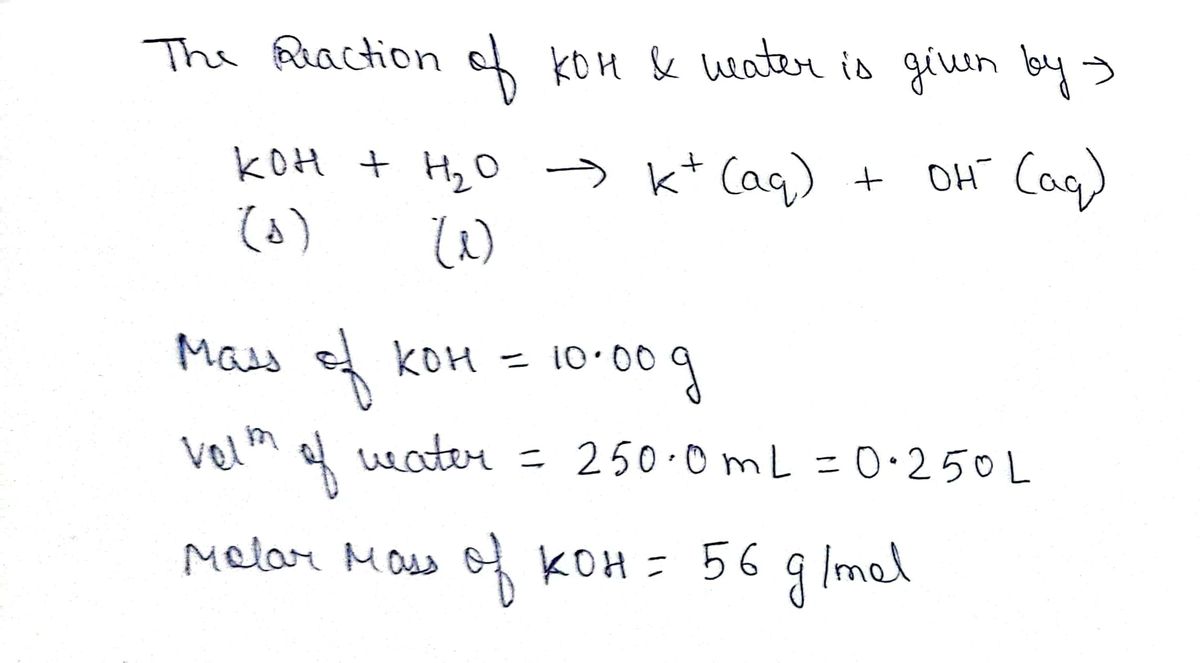 The Reaction of KOH & water is given by →
KOH + H₂O → K⁺ (aq) + OH⁻ (aq)
(s) (l)
Mass of KOH = 10.00 g
Volᵐ of water = 250.0 mL = 0.250 L
Molar Mass of KOH = 56 g/mol